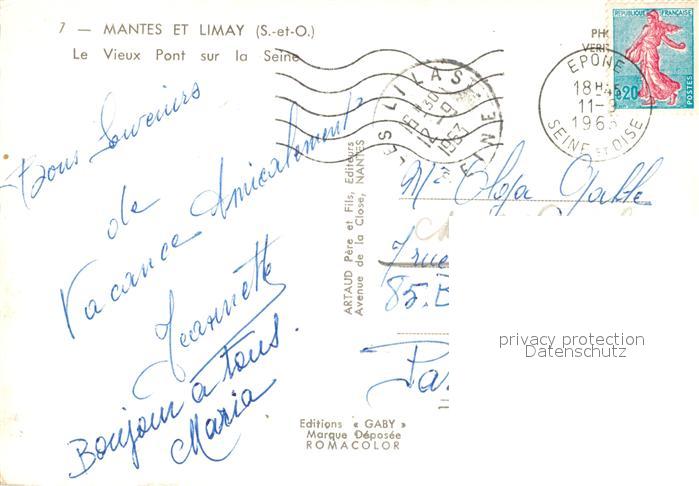 7 — MANTES ET LIMAY (S.-et-O.)
Le Vieux Pont sur la Seine
Bons Souvenirs
de
Vacance Amicalement
Jeannette
Bonjour à tous.
Maria
ARTAUD Père et Fils, Editeurs
Avenue de la Close, NANTES
Editions « GABY »
Marque Déposée
ROMACOLOR
PHO
VERIT
REPUBLIQUE FRANÇAISE
0,20
POSTES
EPONE
18H45
11-9
1963
SEINE ET OISE
LES LILAS
12-9
1963
SEINE
Mme Olga
rue
85.
Pa
privacy protection
Datenschutz